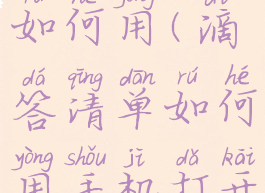 如何用(滴
dá qīng dān rú hé
答清单如何
yòng shǒu jī dǎ kāi
用手机打开